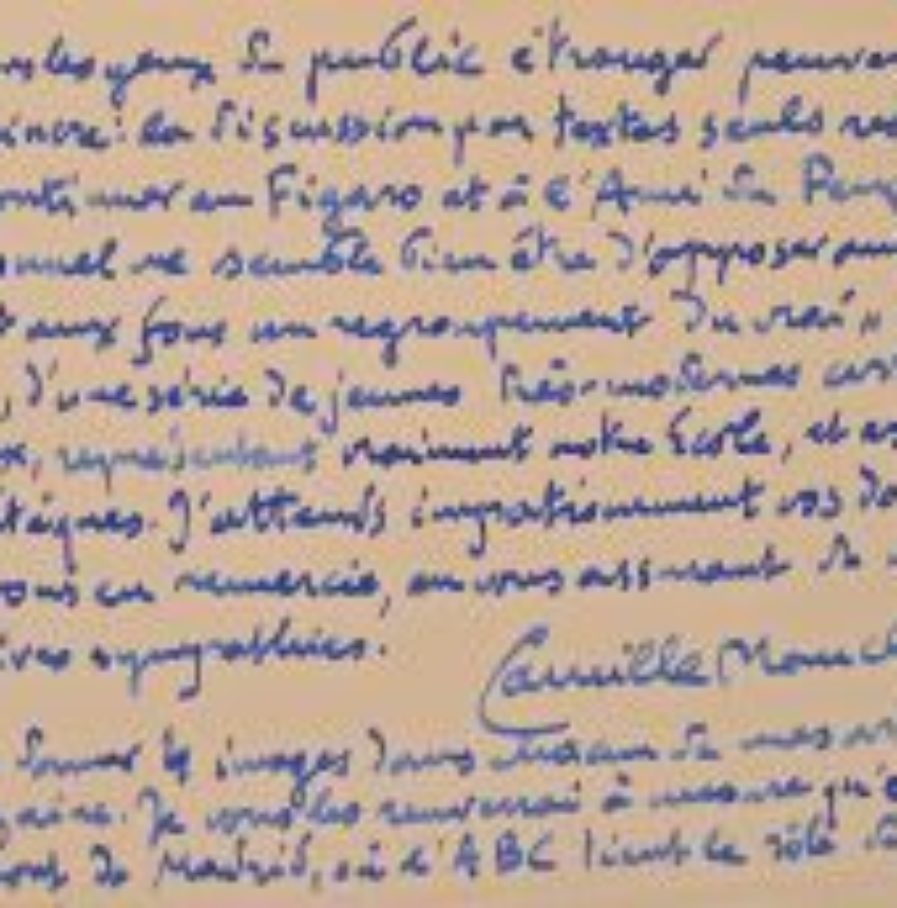 les yeux du public étranger peuvent
la discussion par textes seuls
au Figaro et à l'Ami du Peup
me semble bien être d'opposer aux
aux fous un regroupement du vrai"
, d'une série de jeunes très-modernes
représentant vraiment notre École, et
J'attends impatiemment vos
en remercie, en vous assurant de
sympathies.
Camille Maucl
images dans de mes
Je vous les renverrai à mesure qu'
de Madrid, où l'ABC tient le rôle d